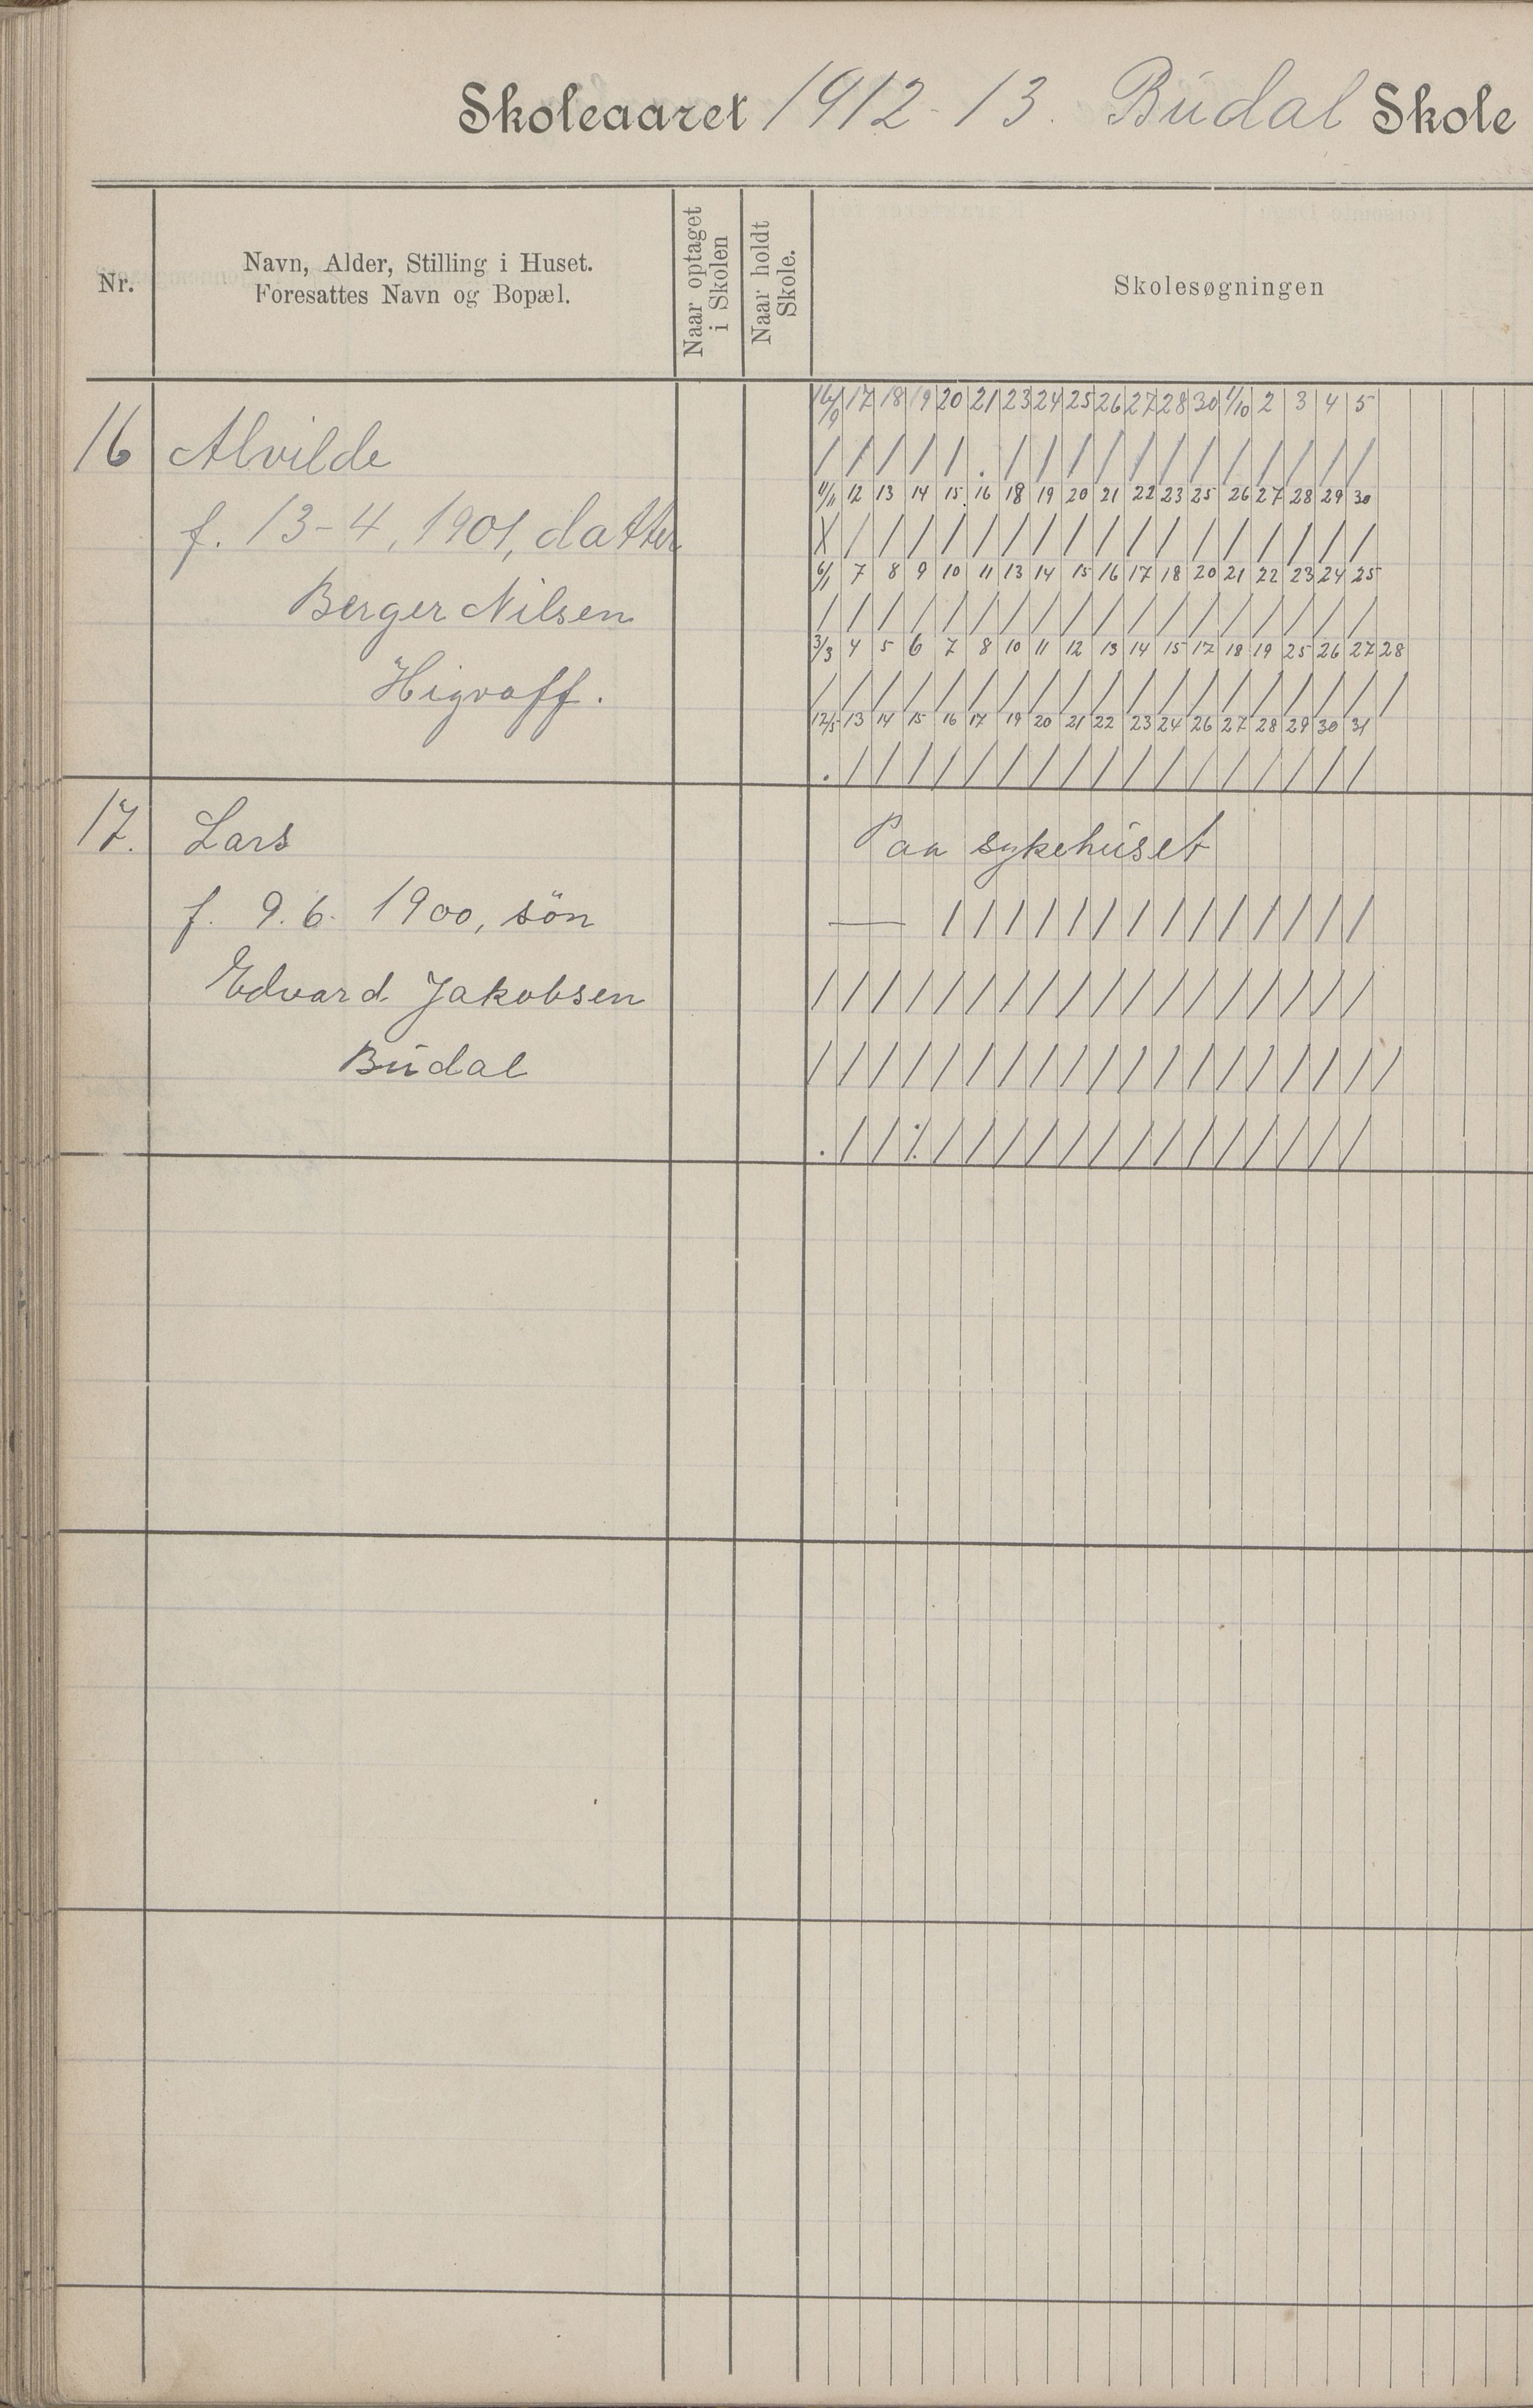 Skoleaaret 1912-13. Budal Skole
Nr.
Navn, Alder, Stilling i Huset.
Foresattes Navn og Bopæl.
Naar optaget
i Skolen
Naar holdt
Skole.
Skolesøgningen
16/9 17 18 19 20 21 23 24 25 26 27 28 30 1/10 2 3 4 5
16 Alvilde / / / / / . / / / / / / / / / / / /
11/11 12 13 14 15 16 18 19 20 21 22 23 25 26 27 28 29 30
f. 13-4, 1901, datter X / / / / / / / / / / / / / / / / /
6/1 7 8 9 10 11 13 14 15 16 17 18 20 21 22 23 24 25
Berger Nilsen / / / / / / / / / / / / / / / / / /
3/3 4 5 6 7 8 10 11 12 13 14 15 17 18 19 25 26 27 28
/ / / / / / / / / / / / / / / / / / /
12/5 13 14 15 16 17 19 20 21 22 23 24 26 27 28 29 30 31
. / / / / / / / / / / / / / / / / /
17. Lars Paa sykehuset
f. 9.6. 1900, sön — / / / / / / / / / / / / / /
Edvard Jakobsen / / / / / / / / / / / / / / / / / /
Budal / / / / / / / / / / / / / / / / / / /
. / / ⁒ / / / / / / / / / / / / / /